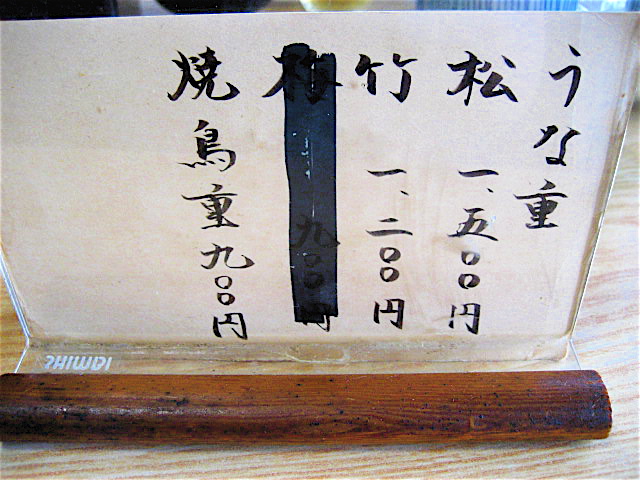 うな重
松 一、五〇〇円
竹 一、二〇〇円
梅 九〇〇円
焼鳥重 九〇〇円
SHIMBI